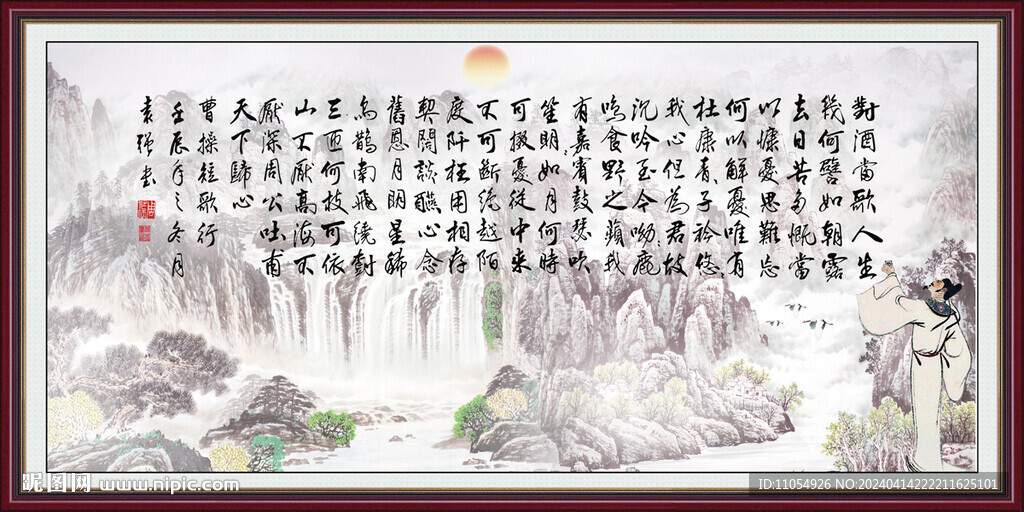 對酒當歌人生
幾何譬如朝露
去日苦多慨當
以慷憂思難忘
何以解憂唯有
杜康青〻子衿悠〻
我心但為君故
沉吟至今呦〻鹿
鳴食野之蘋我
有嘉賓鼓瑟吹
笙明〻如月何時
可掇憂從中來
不可斷絕越陌
度阡枉用相存
契闊談讌心念
舊恩月明星稀
烏鵲南飛繞樹
三匝何枝可依
山不厭高海不
厭深周公吐甫
天下歸心
曹操短歌行
壬辰年之冬月
袁強書
昵图网 www.nipic.com
ID:11054926 NO:20240414222211625101